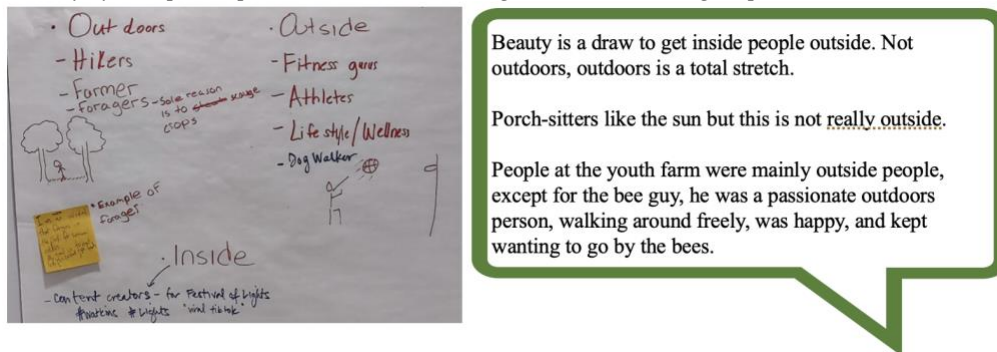 · Outdoors
- Hikers
- Farmer
- Foragers - Sole reason
is to
crops
* Example of
forager
· Outside
- Fitness gurus
- Athletes
- Lifestyle/Wellness
- Dog Walker
· Inside
- Content creators - for Festival of Lights
#watkins #Lights "viral tiktok"
Beauty is a draw to get inside people outside. Not
outdoors, outdoors is a total stretch.
Porch-sitters like the sun but this is not really outside.
People at the youth farm were mainly outside people,
except for the bee guy, he was a passionate outdoors
person, walking around freely, was happy, and kept
wanting to go by the bees.